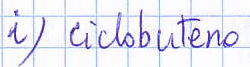 i) ciclobuteno